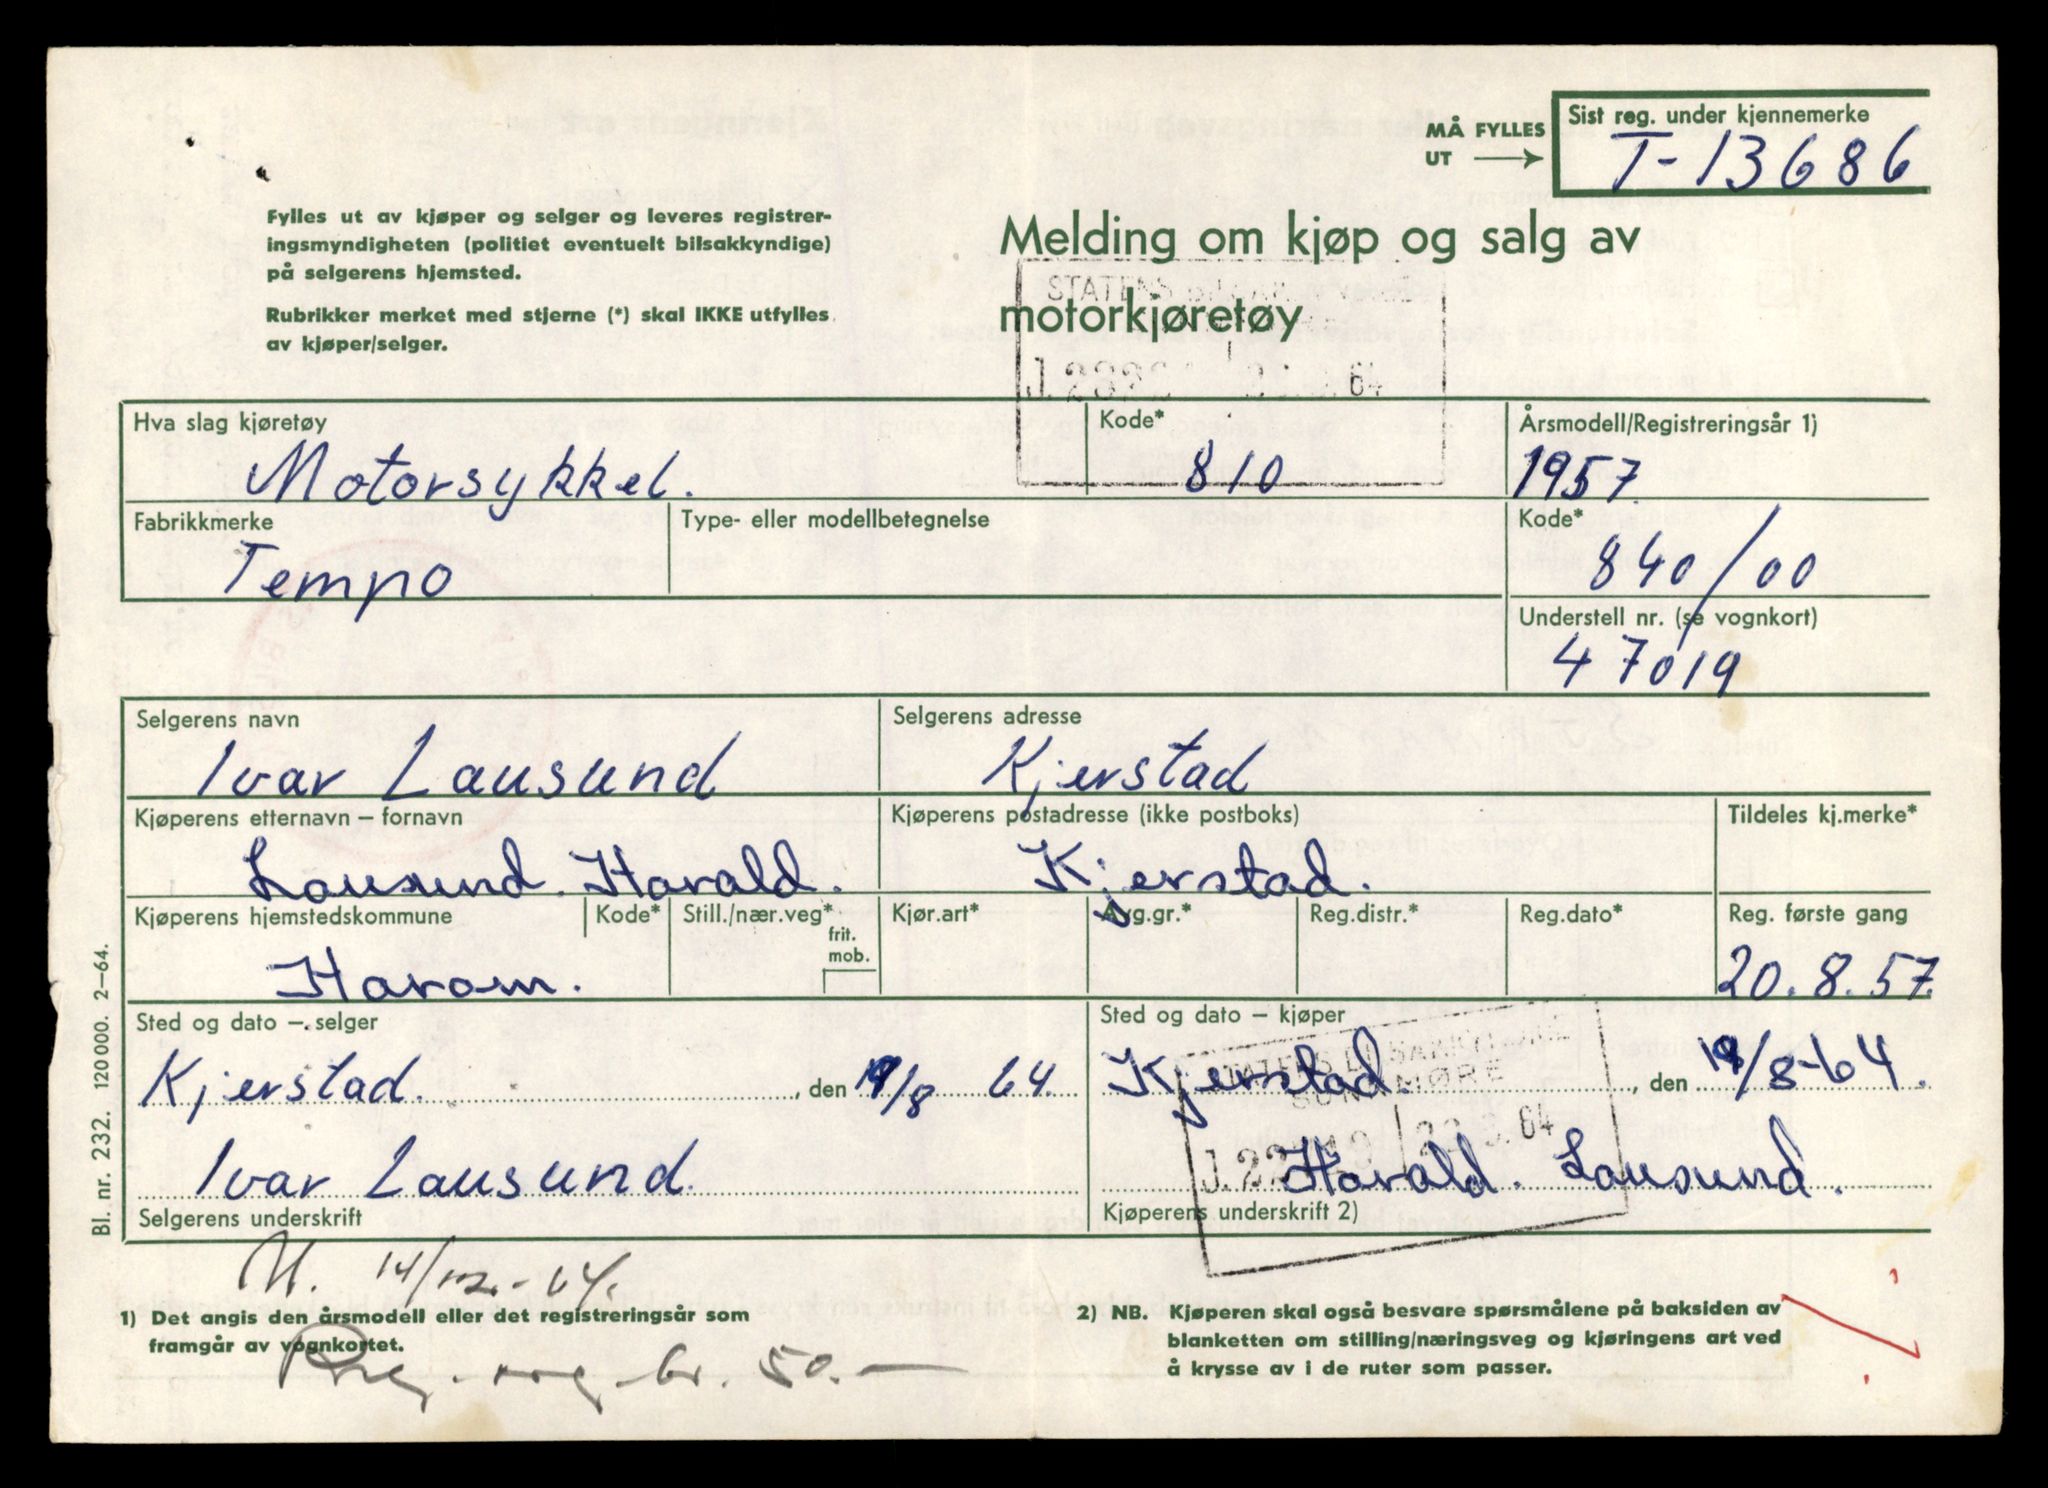 MÅ FYLLES
UT
Sist reg. under kjennemerke
T-13686
Fylles ut av kjøper og selger og leveres registrer-
ingsmyndigheten (politiet eventuelt bilsakkyndige)
på selgerens hjemsted.
Rubrikker merket med stjerne (*) skal IKKE utfylles
av kjøper/selger.
Melding om kjøp og salg av
motorkjøretøy
STATENS
64
Hva slag kjøretøy
Motorsykkel.
Kode*
810
Årsmodell/Registreringsår 1)
1957.
Fabrikkmerke
Tempo
Type- eller modellbetegnelse
Kode*
840/00
Understell nr. (se vognkort)
47019
Selgerens navn
Ivar Lausund
Selgerens adresse
Kjerstad
Kjøperens etternavn – fornavn
Lausund. Harald.
Kjøperens postadresse (ikke postboks)
Kjerstad.
Tildeles kj.merke*
Kjøperens hjemstedskommune
Haram.
Kode*
Still./nær.veg*
frit.
mob.
Kjør.art*
Avg.gr.*
Reg.distr.*
Reg.dato*
Reg. første gang
20.8.57.
Sted og dato – selger
Kjerstad. , den 19/8 64.
Ivar Lausund.
Selgerens underskrift
Sted og dato – kjøper
Kjerstad. , den 19/8-64.
STATENS BILSAKKYNDIGE
MØRE
64
Harald. Lausund.
Kjøperens underskrift 2)
Bl. nr. 232. 120 000. 2–64.
M. 14/12.-64.
1) Det angis den årsmodell eller det registreringsår som
framgår av vognkortet.
50.—
2) NB. Kjøperen skal også besvare spørsmålene på baksiden av
blanketten om stilling/næringsveg og kjøringens art ved
å krysse av i de ruter som passer.